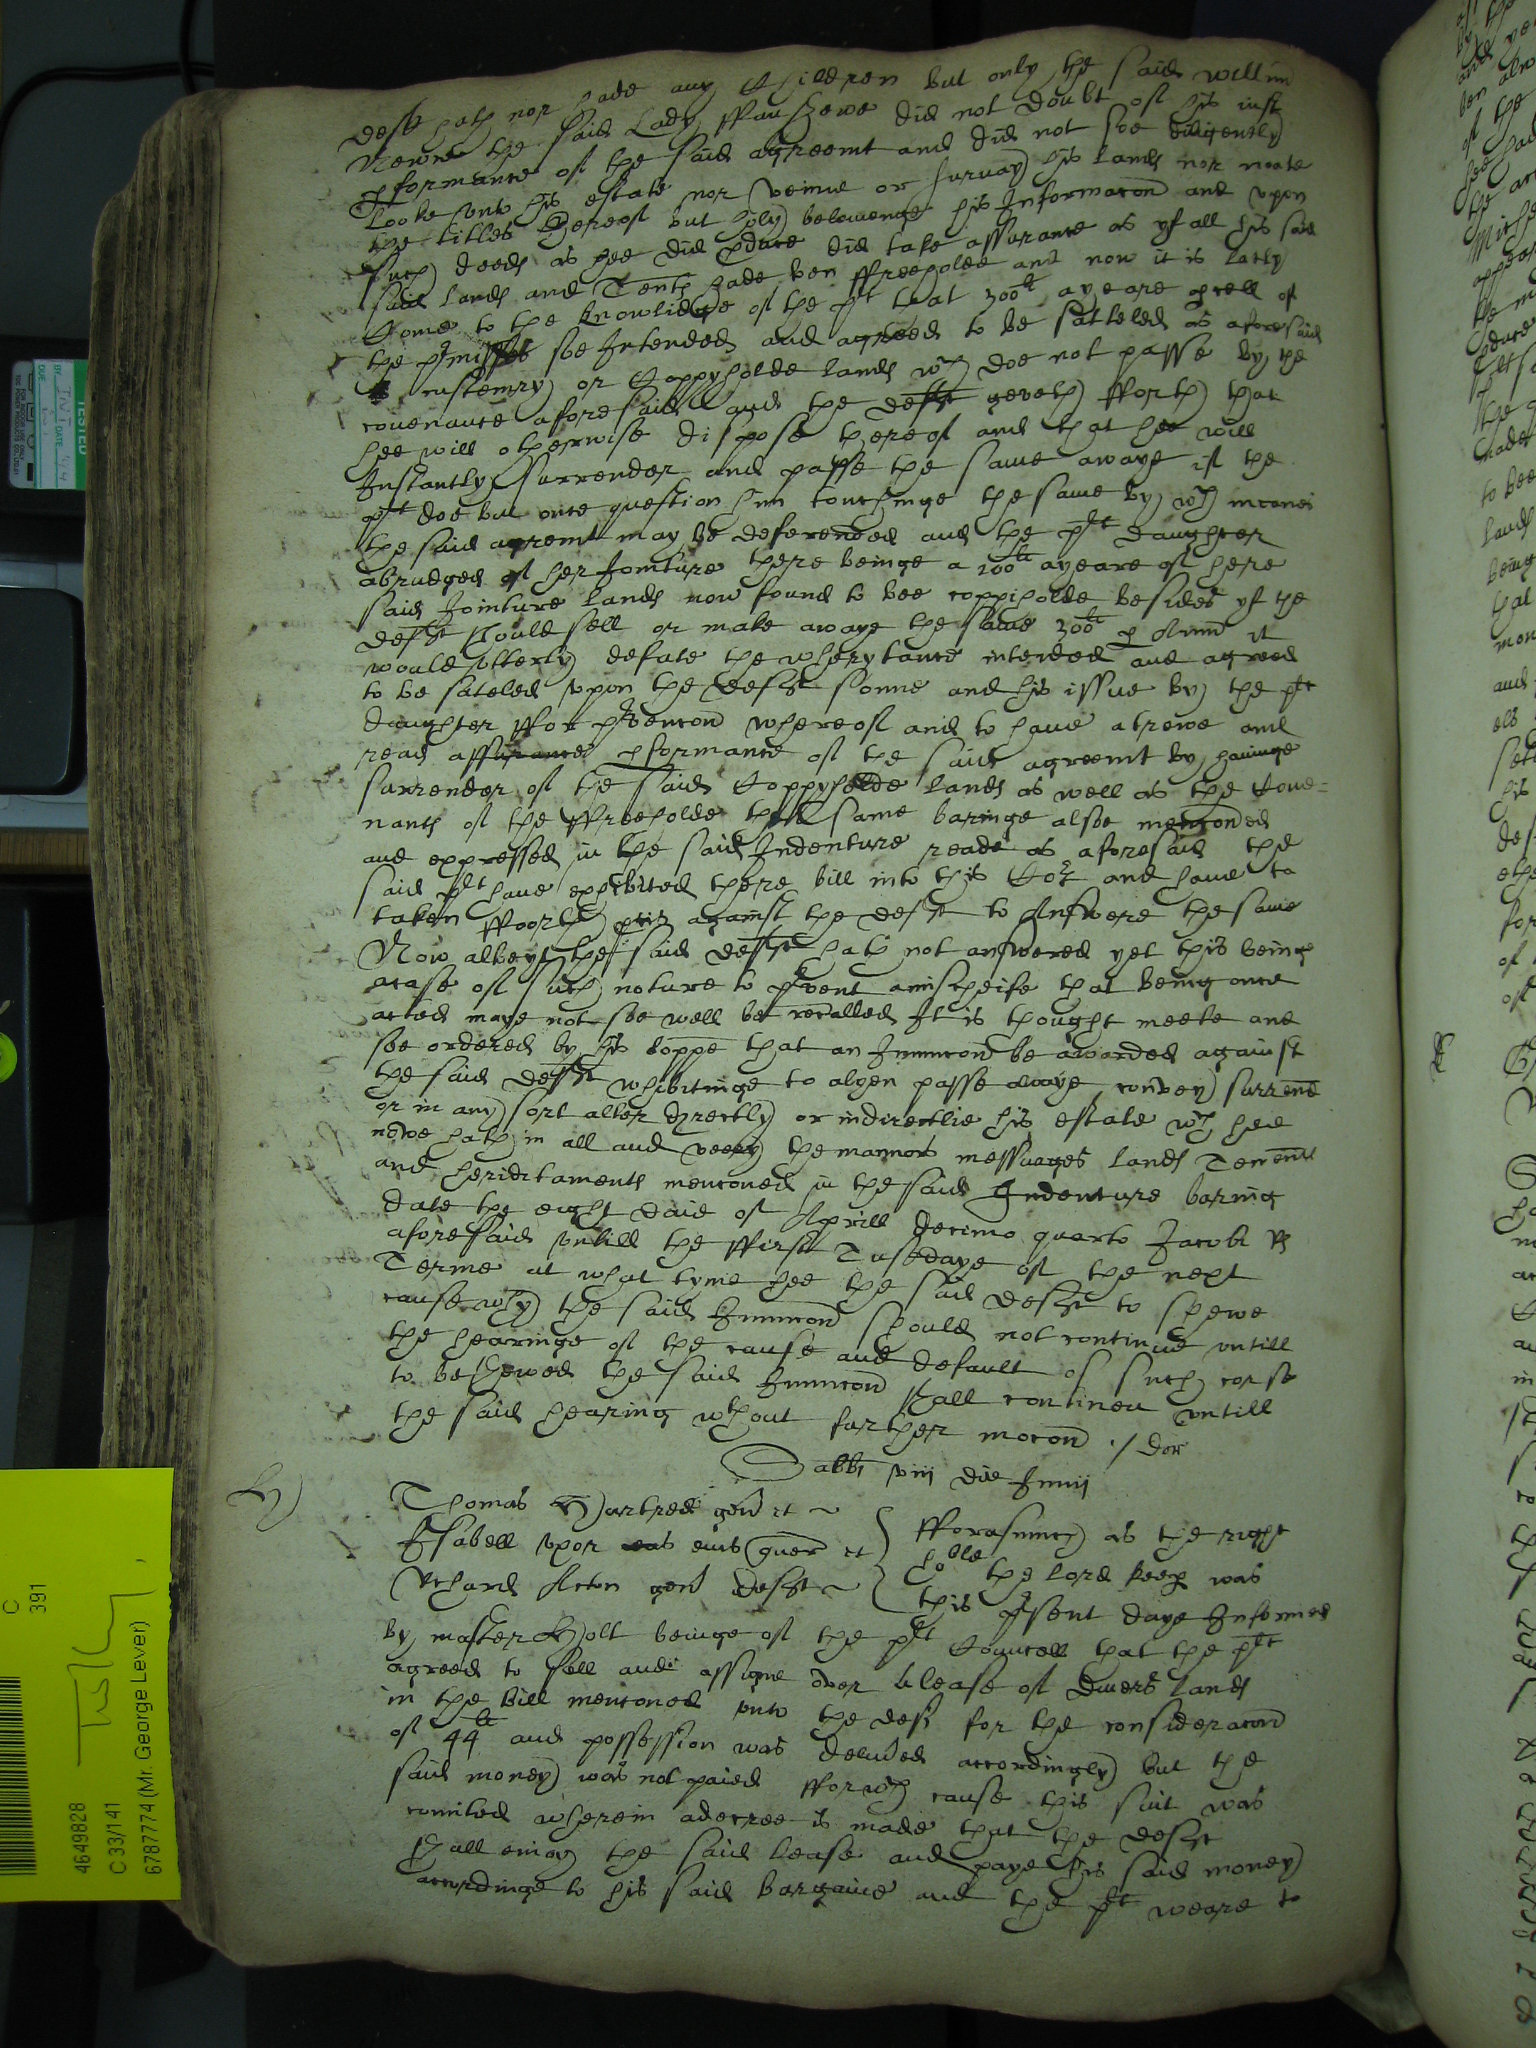 deft hath nor hade any Children but only the said Willm
Newe the said Lady Fanshewe did not doubt of his iust
pformance of the said agreemt and did not soe diligently
Looke into his estate nor veiwe or survay his lands nor noate
the titles thereof but holy beleweinge his Informacon and upon
such deeds as hee did pduce did take assurance as yf all his said
said lands and Tents hade ben ffreeholde and now it is latly
Come to the knowledge of the plt that 300li a yeare pcell of
the pmisses soe Intended and agreed to be satteled as aforesaid
is custemry or Coppyholde lands wch doe not passe by the
covenante aforesaid and the deft geveth fforth that
hee will otherwise dispose thereof and that hee will
Instantly surrender and passe the same awaye if the
plt doe but once question him touchinge the same by wch meanes
the said agremt may be defrended and the plt daughter
abrudged of her Jointure there beinge a 100li a yeare of here
said Jointure lands now found to bee coppiholde besides yf the
deft should sell or make awaye the same 300li p Annu it
would utterly defate the inherytance intended and agreed
to be sateled upon the defts sonne and his issue by the plt
daughter ffor pvencon whereof and to have a trewe and
read assurance pformance of the said agreemt by haveinge
surrender of the said Coppyholde lands as well as the Cove=
nants of the ffreeholde the same baringe alsoe menconed
and expressed in the said Indenture reade as aforesaid the
said plt have exhibited there bill into this Cort and have ta
taken fforth pces against the deft to Answere the same
Now albeyt the said deft hath not answered yet this beinge
a case of such nature to pvent a mischeife that being once
acted maye not soe well be recalled It is thought meete and
soe ordered by his Lopps that an Iniunccon be awarded against
the said deft inhibitinge to alyen passe awaye convey surrend
or in any sort alter directly or indirectlie his estate wch hee
nowe hath in all and every the mannors messuages lands Tenemts
and heriditaments menconed in the said Indenture baring
date the eight daie of Aprill decimo quarto Jacobi R
aforesaid untill the ffirst Tusedaye of the next
Terme at what tyme hee the said deft to shewe
cause why the said Iniunccon should not continue untill
the hearinge of the cause and default of such cause
to be shewed the said Iniunccon shall contineu untill
the said hearing wthout further mocon ./ dor
Sabbi viii die Junii
Thomas Hartred gen et
Isabell uxor eius quer et
Richard Acton gen deft
fforasmuch as the right
hoble the lord keep was
this psent daye Informed
by master Holt beinge of the plt Councell that the plt
agreed to sell and assigne over a lease of divers lands
in the bill menconed unto the deft for the consideracon
of 44li and possession was delivred accordingly but the
said money was not paied ffor wch cause this suit was
comited wherein a decree is made that the deft
shall enioy the said lease and paye his said money
accordinge to his said bargaine and the plt weare to
C
391
4649828
C 33/141
6787774 (Mr. George Lever)
TESTED